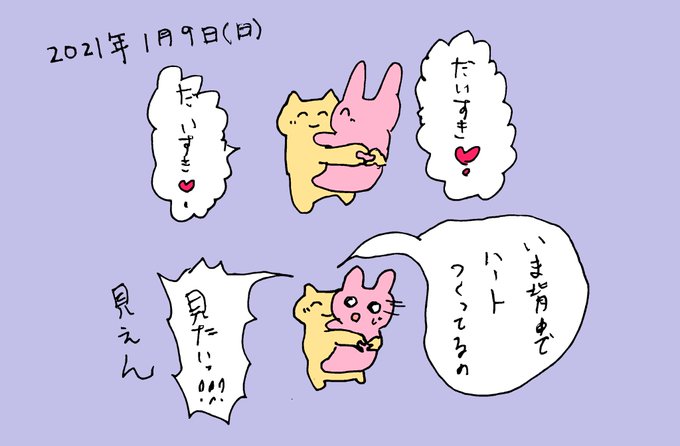 2021年1月9日(日)
だいすき♥!
だいすき♥!
いま背中で
ハート
つくってるの
見たいっ!!!
見えん